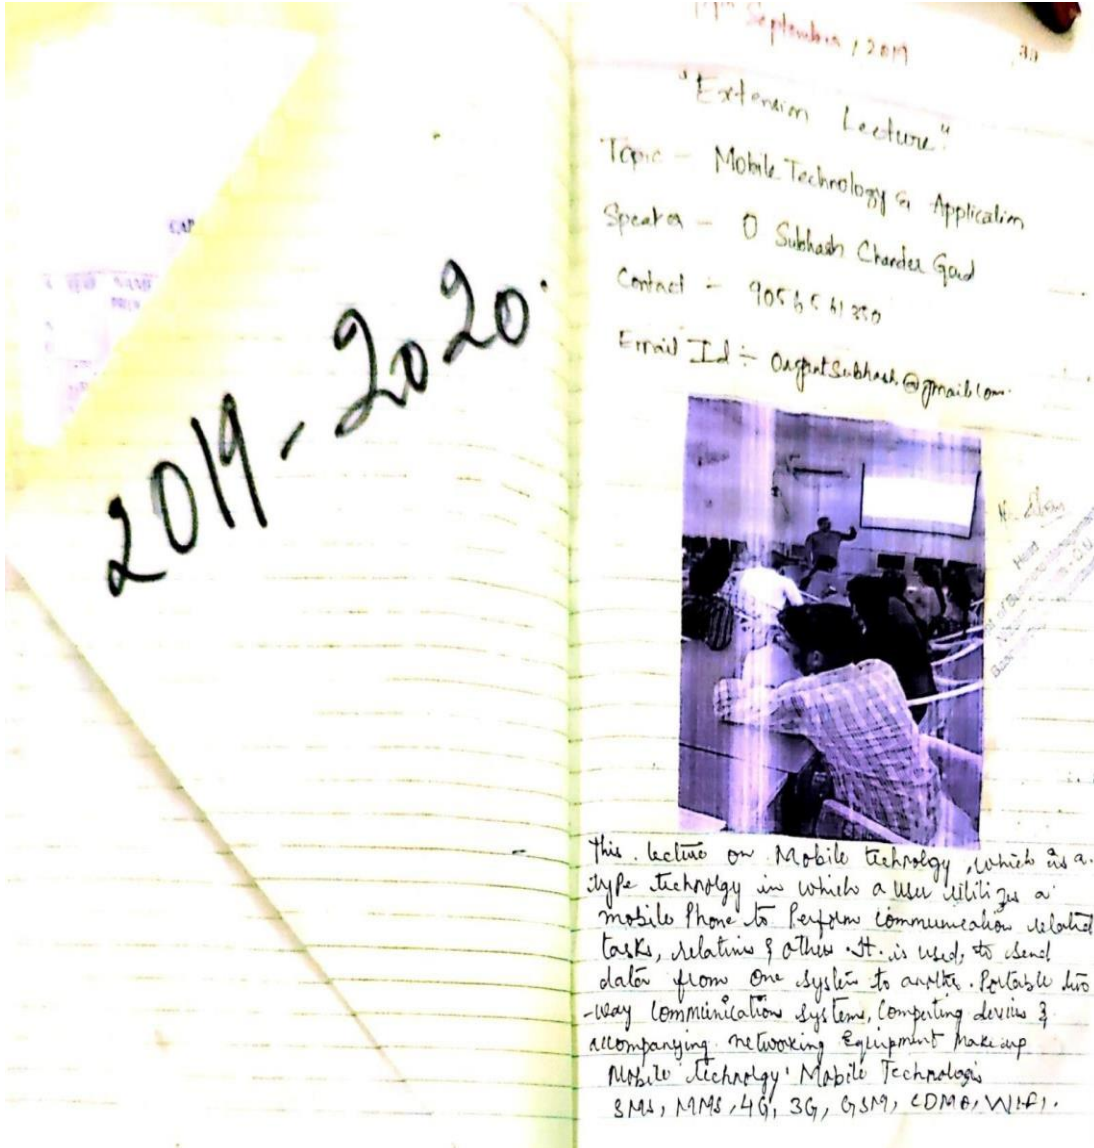 2019-2020
September, 2019
"Extension Lecture"
Topic - Mobile Technology & Application
Speaker - O Subhash Chander Goud
Contact :-
Email Id :-
Head
This lecture on Mobile technolgy, which is a
type technolgy in which a user utilizes a
mobile Phone to Perform communication related
tasks, relative & other. It is used, to send
data from one system to another. Portable two
-way communication systems, Computing devices &
accompanying networking Equipment make up
Mobile technolgy. Mobile Technologis
SMS, MMS, 4G, 3G, GSM, CDMA, WIFI.